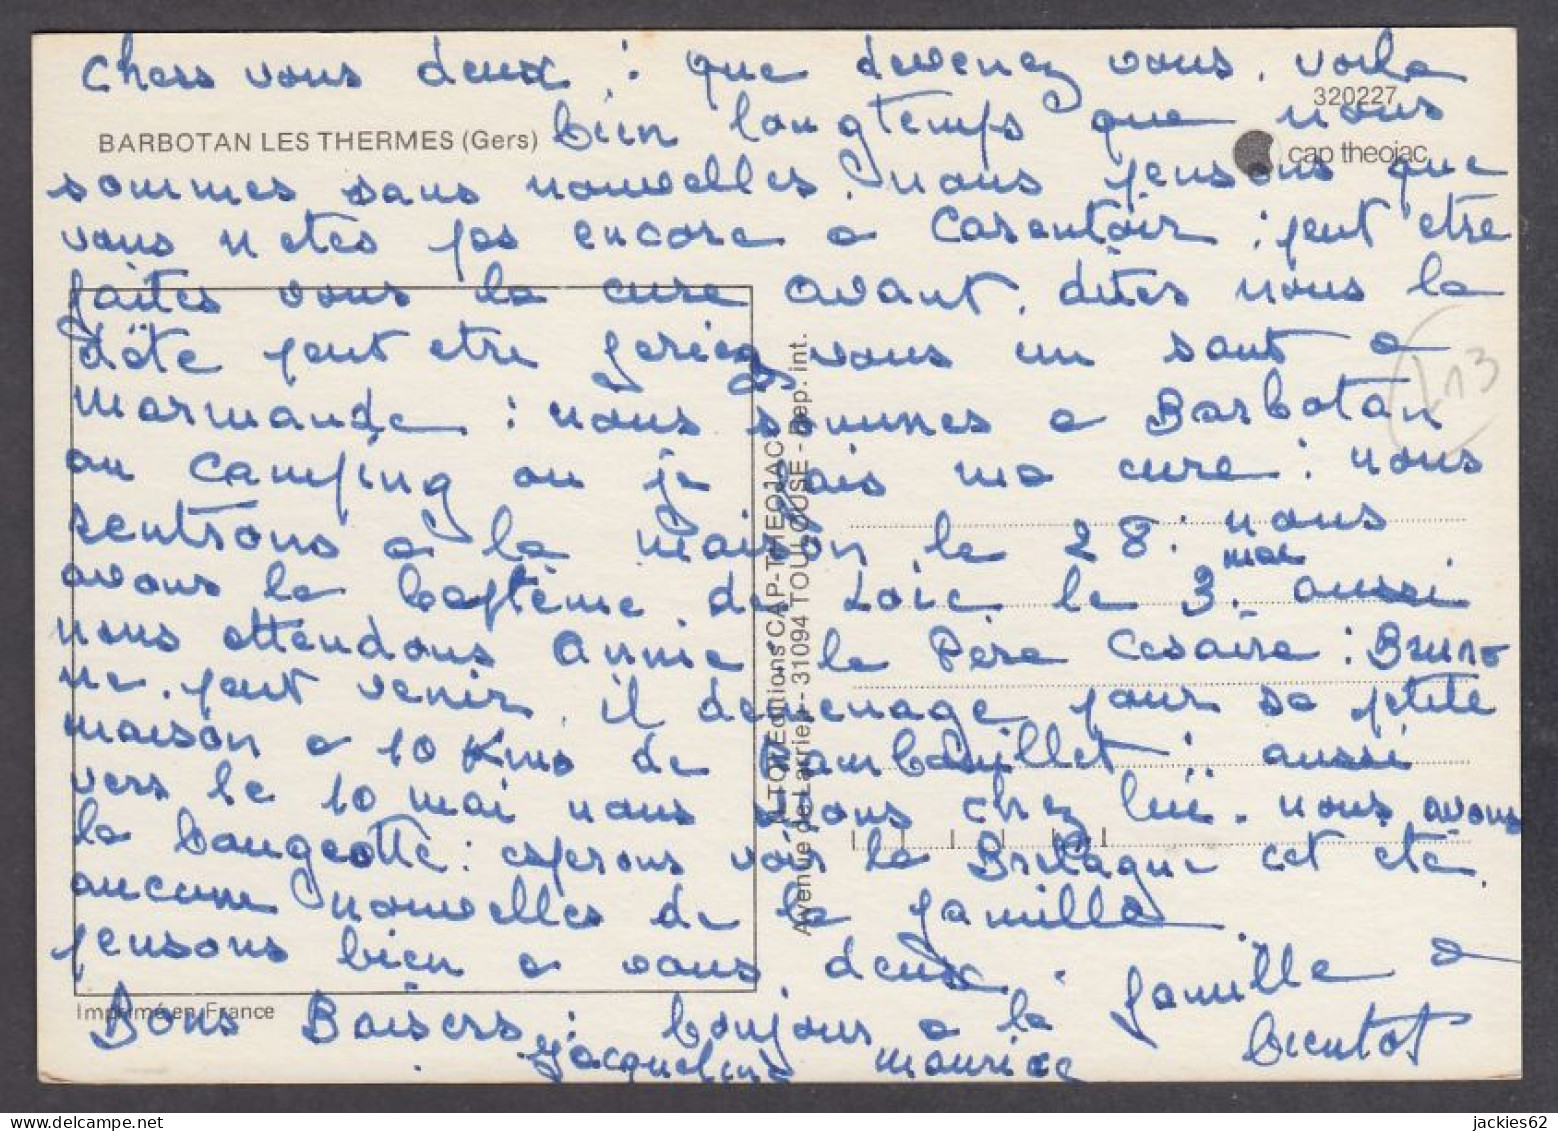 Chers vous deux : que devenez vous. voila
320227
bien longtemps que nous
BARBOTAN LES THERMES (Gers)
cap theojac
sommes sans nouvelles. nous pensons que
vous n etes pas encore a Carentoir ; peut etre
faites vous la cure avant. dites nous la
date peut etre feriez vous un saut a
Marmande : nous sommes a Barbotan
au Camping ou je fais ma cure : nous
rentrons a la maison le 28. nous
avons le baptême de Loic le 3. mai aussi
nous attendons Annie le Père Cesaire : Bruno
ne peut venir. il demenage pour sa petite
maison a 10 Kms de Rambouillet : aussi
vers le 10 mai nous irons chez lui. nous avons
la bougeotte : esperons voir la Bretagne cet eté.
aucune nouvelles de la famille.
pensons bien a vous deux.
Bons Baisers : bonjour a la famille a
bientot
Jacqueline Maurice
Imprimé en France
Editions CAP-THEOJAC
Avenue de Larrieu - 31094 TOULOUSE - Dep. int.
213
jackies62